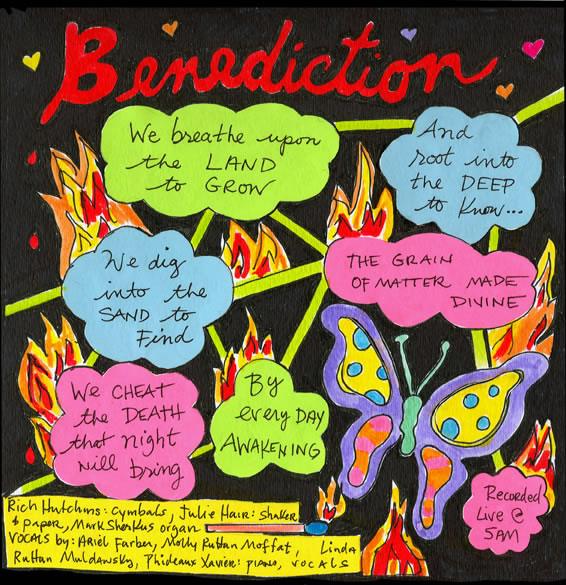 Benediction
We breathe upon
the LAND
to GROW
And
root into
the DEEP
to Know...
We dig
into the
SAND to
Find
THE GRAIN
OF MATTER MADE
DIVINE
We CHEAT
the DEATH
that night
will bring
By
every DAY
AWAKENING
Recorded
Live @
5AM
Rich Hutchins: cymbals, Julie Hair: shaker
& paper, Mark Sherkus organ
VOCALS by: Ariel Farber, Molly Ruttan Moffat, Linda
Ruttan Muldawsky, Phideaux Xavier: piano, vocals